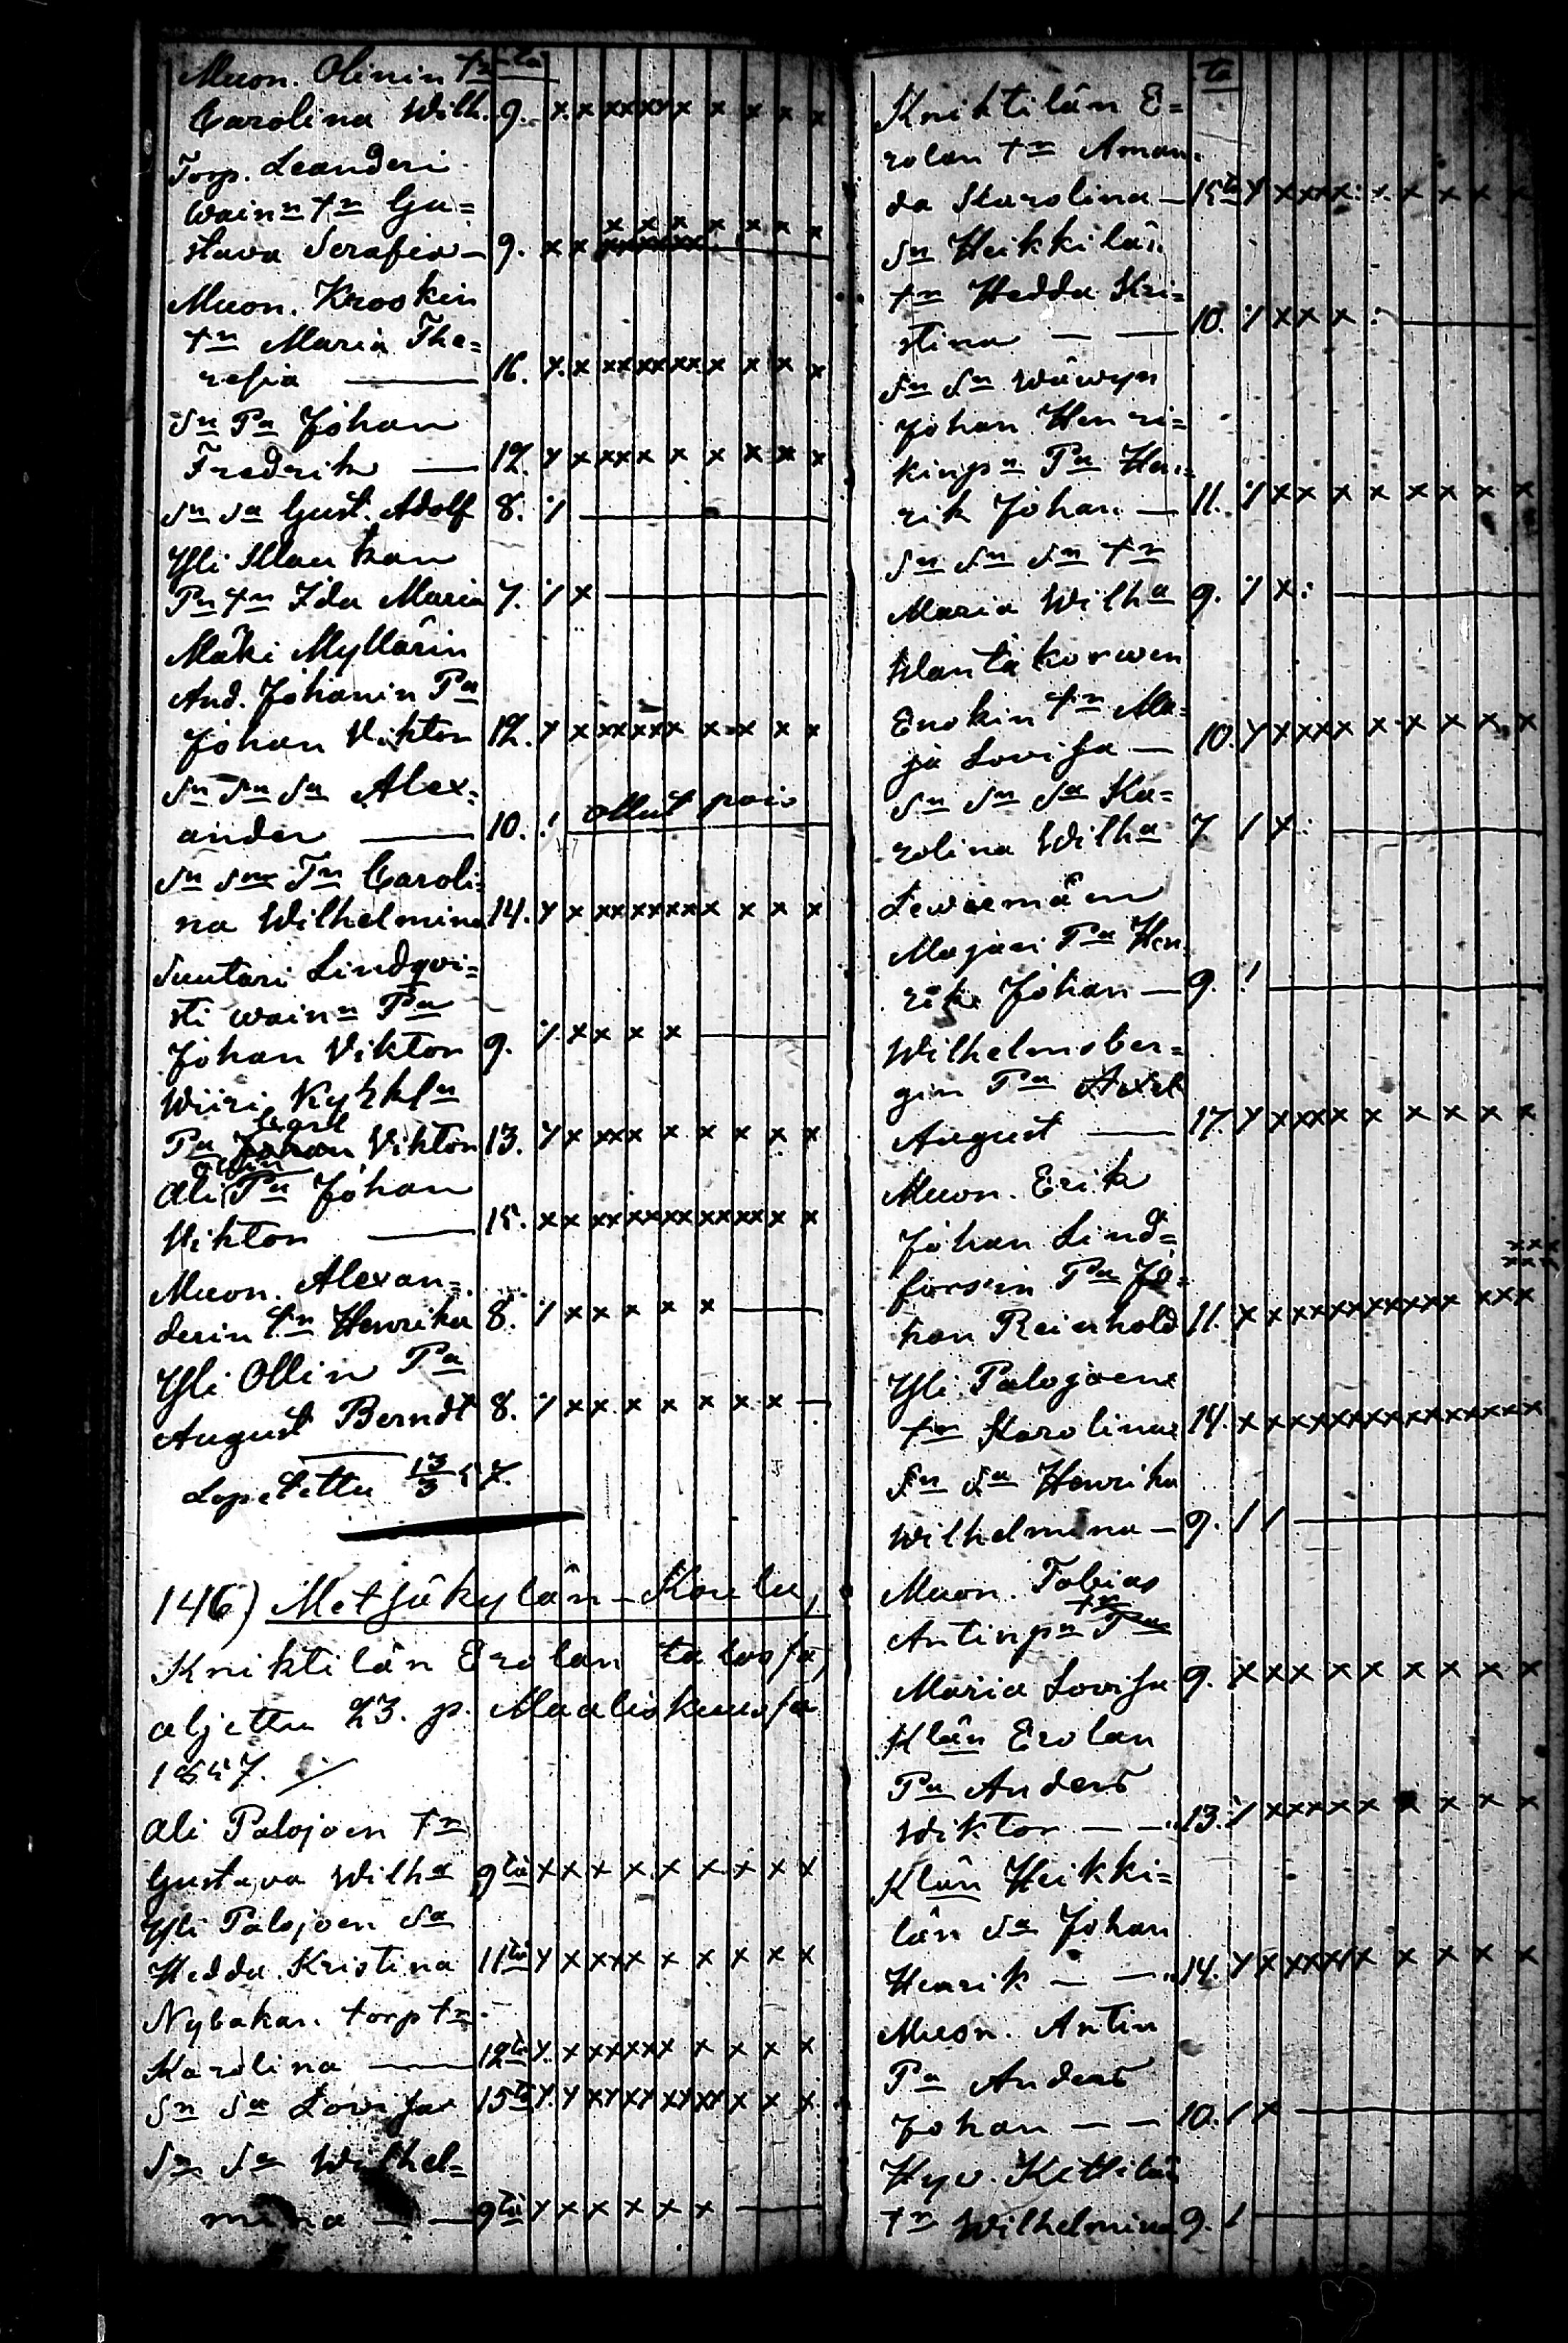 Muon. Olinin tn ta
Carolina Wilh. 9. x x x x x x x x x x x
Torp. Leanderi
wainn tn Gu=
stava Serafia — 9. x x x x x x x x x
Muon. Krookin
tn Maria The=
resia — 16. x x x x x x x x x x x x
Sn Pa Johan
Fredrik — 12. x x x x x x x x x x x
Sn Sa Gust. Adolf 8. ·/. —
Yli Maunkan
Pn tn Ida Maria 7. ·/. x —
Mäki Myllärin
And. Johanin Pa
Johan Viktor 12. x x x x x x x x x x x
Sn Sn Sa Alex=
ander — 10. ·/ ollut pois
Sn Sn Tn Caroli=
na Wilhelmina 14. x x x x x x x x x x x x
Suutari Lindqvi=
sti wainn Pa
Johan Viktor 9. ·/. x x x x —
Wiiri
Pa Johan Viktor 13. x x x x x x x x x x
Ali Pa Johan
Viktor — 15. x x x x x x x x x x x x x x
Muon. Alexan=
derin tn Henrika 8. ·/. x x x x x —
Yli Ollin Pa
August Berndt 8. ·/. x x x x x x x —
Lopetettu 13/3 57.
146) Metsäkylän-Koulu,
Kniktilän Erolan talosſa,
aljettu 23. p. Maaliskuusſa
1857. ·/.
Ali Palojoen tn
Gustava Wilha 9tä x x x x x x x x x
Yli Palojoen Sa
Hedda Kristina 11tä x x x x x x x x x x
Nybakan torp tn
Karolina — 12ta x x x x x x x x x x x
Sn Sa Lovisa 15ta x x x x x x x x x x x x
Sn Sa Wilhel=
mina — 9tä x x x x x x —
ta
Kniktilän E=
rolan tn Aman=
da Karolina — 15ta x x x x x x x x x x
Sn Heikkilän
tn Hedda Kri=
stina — — 10. ·/. x x x : —
Sn Sn wäwyn
Johan Henri=
kinpn Pa Hen=
rik Johan — 11. ·/. x x x x x x x x
Sn Sn Sn tn
Maria Wilha 9. ·/. x : —
Mantäkorwen
Enokin tn Ma=
ja Lovisa — 10. x x x x x x x x x x
Sn Sn Sa Ka=
rolina Wilha 7. / x : —
Lewäemäen
Majari Pa Hen=
rik Johan — 9. ·/ —
Wilhelmsber=
gin Pa Axel
August — 17. x x x x x x x x x x
Muon. Erik
Johan Lind=
forsin Pa Jo=
han Reinhold 11. x x x x x x x x x x x x x x
Yli Palojoen
tn Karolina 14. x x x x x x x x x x x x x x x x
Sn Sa Henrika
Wilhelmina — 9. / / —
Muon. Tobias
Antinpn tn
Maria Lovisa 9. x x x x x x x x x
Klän Erolan
Pa Anders
Wiktor — — 13. ·/. x x x x x x x x x
Klän Heikki=
län Sa Johan
Henrik — — 14. x x x x x x x x x x x
Muon. Antin
Pa Anders
Johan — — 10. / x —
Hyv. Kittilän
tn Wilhelmina 9. / —